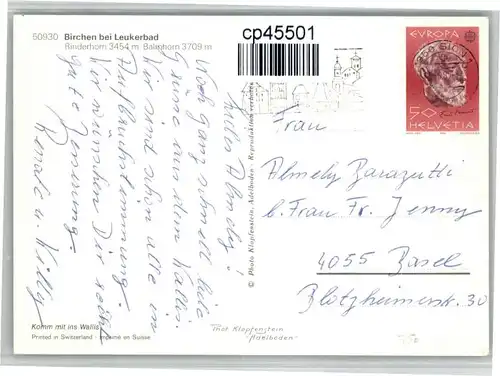 50930 Birchen bei Leukerbad
Rinderhorn 3454 m Balmhorn 3709 m
cp45501
EUROPA
50
HELVETIA
SION 1
© Photo Klopfenstein, Adelboden · Reproduktion verboten
Noch ganz schnell liebe
Grüsse aus dem Wallis.
Wir sind schon alle in
Aufbruchstimmung.
Wir wünschen Dir recht
gute Besserung.
Renate u. Willy
Frau
Almely Barazutti
b. Frau Fr. Jenny
4055 Basel
Blotzheimerstr. 30
Komm mit ins Wallis
Printed in Switzerland - Imprimé en Suisse
Phot. Klopfenstein
Adelboden